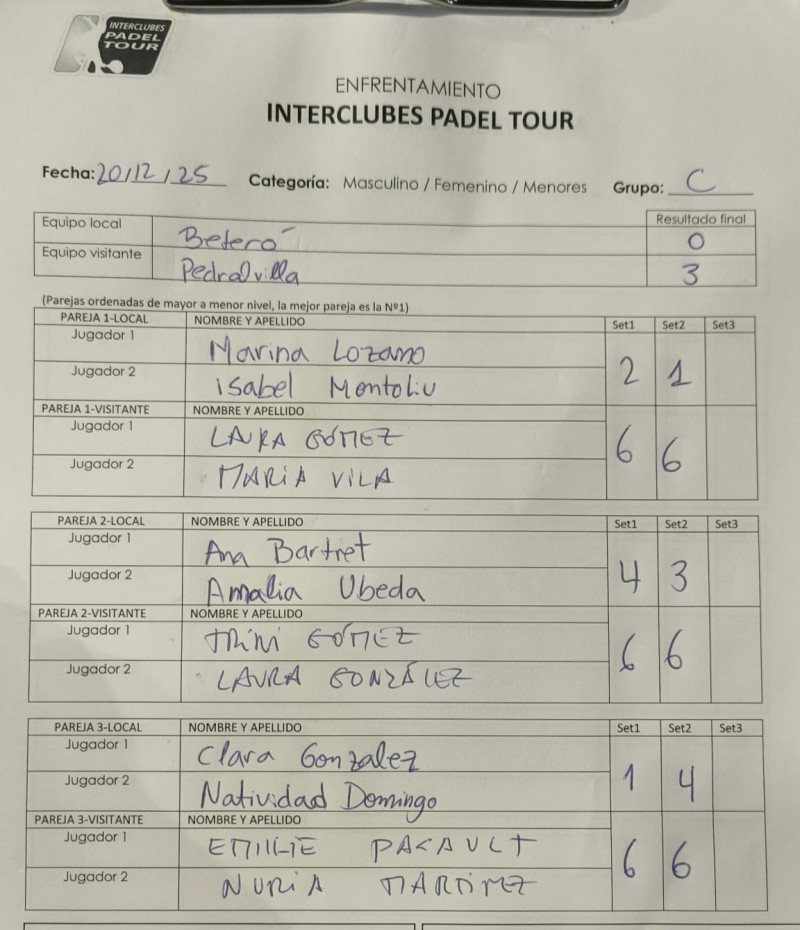 INTERCLUBES
PADEL
TOUR
ENFRENTAMIENTO
INTERCLUBES PADEL TOUR
Fecha: 20/12/25 Categoría: Masculino / Femenino / Menores Grupo: C
Resultado final
Equipo local Beteró 0
Equipo visitante Pedralvilla 3
(Parejas ordenadas de mayor a menor nivel, la mejor pareja es la Nº1)
PAREJA 1-LOCAL NOMBRE Y APELLIDO Set1 Set2 Set3
Jugador 1 Marina Lozano
2 1
Jugador 2 isabel Montoliu
PAREJA 1-VISITANTE NOMBRE Y APELLIDO
Jugador 1 LAURA GÓMEZ
6 6
Jugador 2 MARIA VILA
PAREJA 2-LOCAL NOMBRE Y APELLIDO Set1 Set2 Set3
Jugador 1 Ana Bartret
4 3
Jugador 2 Amalia Ubeda
PAREJA 2-VISITANTE NOMBRE Y APELLIDO
Jugador 1 TRINI GÓMEZ
6 6
Jugador 2 LAURA GONZÁLEZ
PAREJA 3-LOCAL NOMBRE Y APELLIDO Set1 Set2 Set3
Jugador 1 Clara Gonzalez
1 4
Jugador 2 Natividad Domingo
PAREJA 3-VISITANTE NOMBRE Y APELLIDO
Jugador 1 EMILIE PACAULT
6 6
Jugador 2 NURIA MARTINEZ